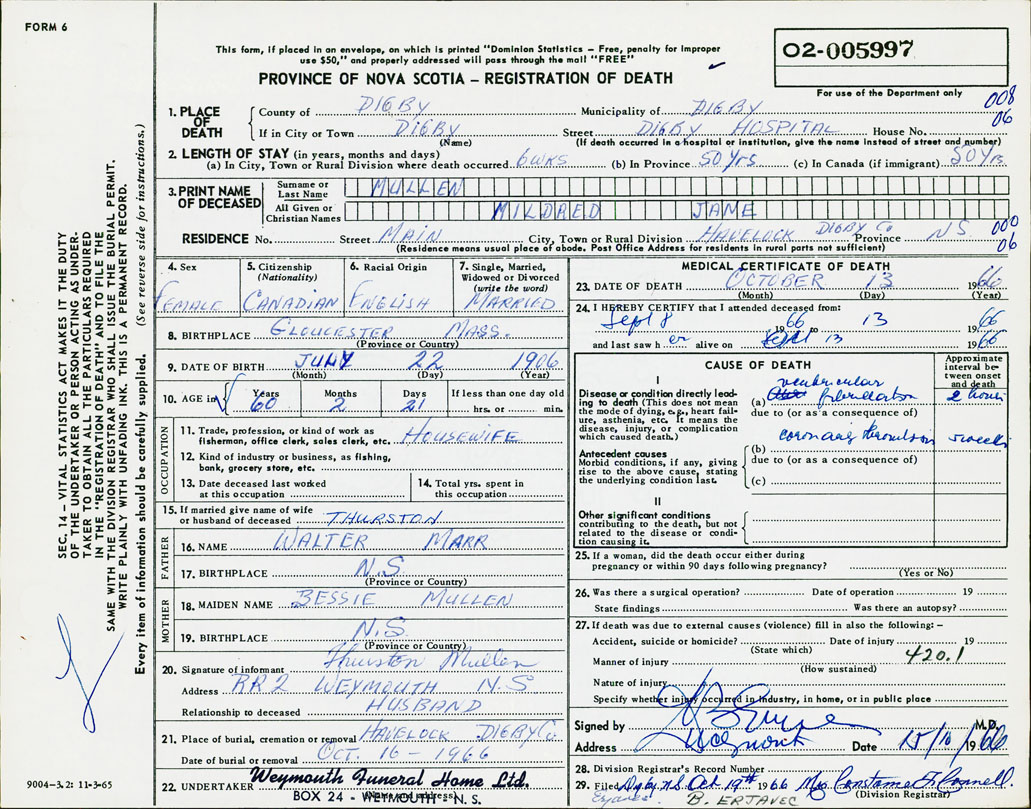 FORM 6
This form, if placed in an envelope, on which is printed "Dominion Statistics – Free, penalty for improper
use $50," and properly addressed will pass through the mail "FREE"
PROVINCE OF NOVA SCOTIA – REGISTRATION OF DEATH
02-005997
For use of the Department only
008
06
1. PLACE OF DEATH
County of DIGBY Municipality of DIGBY
If in City or Town DIGBY Street DIGBY HOSPITAL House No.
(Name) (If death occurred in a hospital or institution, give the name instead of street and number)
2. LENGTH OF STAY (in years, months and days)
(a) In City, Town or Rural Division where death occurred 6 WKS (b) In Province 50 Yrs. (c) In Canada (if immigrant) 50 Yrs
3. PRINT NAME OF DECEASED
Surname or Last Name MULLEN
All Given or Christian Names MILDRED JANE
RESIDENCE No. Street MAIN City, Town or Rural Division HAVELOCK DIGBY Co Province N S
(Residence means usual place of abode. Post Office Address for residents in rural parts not sufficient)
000
06
4. Sex FEMALE
5. Citizenship (Nationality) CANADIAN
6. Racial Origin ENGLISH
7. Single, Married, Widowed or Divorced (write the word) MARRIED
8. BIRTHPLACE GLOUCESTER MASS.
(Province or Country)
9. DATE OF BIRTH JULY 22 1906
(Month) (Day) (Year)
10. AGE in Years 60 Months 2 Days 21 If less than one day old
hrs. or min.
OCCUPATION
11. Trade, profession, or kind of work as
fisherman, office clerk, sales clerk, etc. HOUSEWIFE
12. Kind of industry or business, as fishing,
bank, grocery store, etc.
13. Date deceased last worked
at this occupation
14. Total yrs. spent in
this occupation
15. If married give name of wife
or husband of deceased THURSTON
FATHER
16. NAME WALTER MARR
17. BIRTHPLACE N.S
(Province or Country)
MOTHER
18. MAIDEN NAME BESSIE MULLEN
19. BIRTHPLACE N.S.
(Province or Country)
20. Signature of informant Thurston Mullen
Address RR2 WEYMOUTH N.S
Relationship to deceased HUSBAND
21. Place of burial, cremation or removal HAVELOCK DIGBY Co.
Date of burial or removal OCT. 16 - 1966
22. UNDERTAKER Weymouth Funeral Home Ltd.
(Name and address)
BOX 24 - WEYMOUTH - N. S.
MEDICAL CERTIFICATE OF DEATH
23. DATE OF DEATH OCTOBER 13 1966
(Month) (Day) (Year)
24. I HEREBY CERTIFY that I attended deceased from:
Sept 8 1966 to 13 1966
and last saw her alive on Sept 13 1966
CAUSE OF DEATH
Approximate interval between onset and death
I
Disease or condition directly leading to death (This does not mean
the mode of dying, e.g., heart failure, asthenia, etc. It means the
disease, injury, or complication
which caused death.)
(a) ventricular fibrillation 2 hours
due to (or as a consequence of)
Antecedent causes
Morbid conditions, if any, giving
rise to the above cause, stating
the underlying condition last.
(b) coronary thrombosis 5 weeks
due to (or as a consequence of)
(c)
II
Other significant conditions
contributing to the death, but not
related to the disease or condition causing it.
25. If a woman, did the death occur either during
pregnancy or within 90 days following pregnancy?
(Yes or No)
26. Was there a surgical operation? Date of operation 19
State findings Was there an autopsy?
27. If death was due to external causes (violence) fill in also the following: –
Accident, suicide or homicide? Date of injury 19
(State which)
420.1
Manner of injury
(How sustained)
Nature of injury
Specify whether injury occurred in industry, in home, or in public place
Signed by M.D.
Address Weymouth Date 15/10/1966
28. Division Registrar's Record Number
29. Filed Digby N.S. Oct 19th 1966 Mrs Constance F. Connell
(Division Registrar)
B. ERTAVEC
SEC. 14 – VITAL STATISTICS ACT MAKES IT THE DUTY
OF THE UNDERTAKER OR PERSON ACTING AS UNDERTAKER TO OBTAIN ALL THE PARTICULARS REQUIRED
IN THE "REGISTRATION OF DEATH" AND TO FILE THE
SAME WITH THE DIVISION REGISTRAR WHO SHALL ISSUE THE BURIAL PERMIT.
WRITE PLAINLY WITH UNFADING INK. THIS IS A PERMANENT RECORD.
Every item of information should be carefully supplied. (See reverse side for instructions.)
9004-3.2: 11-3-65